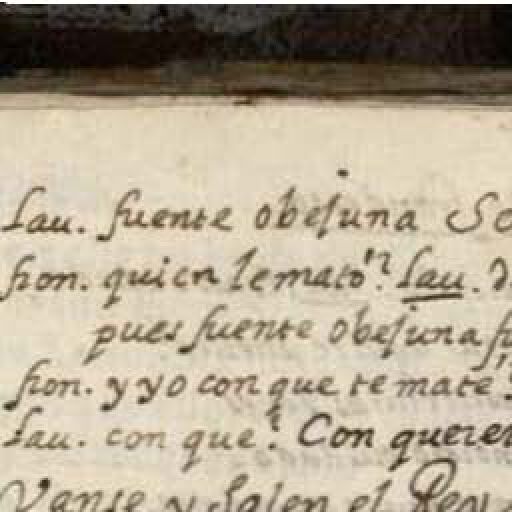 Lau. fuente obejuna So
fron. quien le mato? Lau.
pues fuente obejuna fu
fron. y yo con que te mate?
Lau. con que? Con querer
Vanse y Salen el Rey